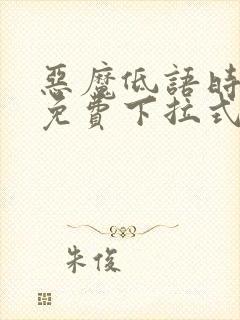 惡魔低語時
免費下拉式
朱俊